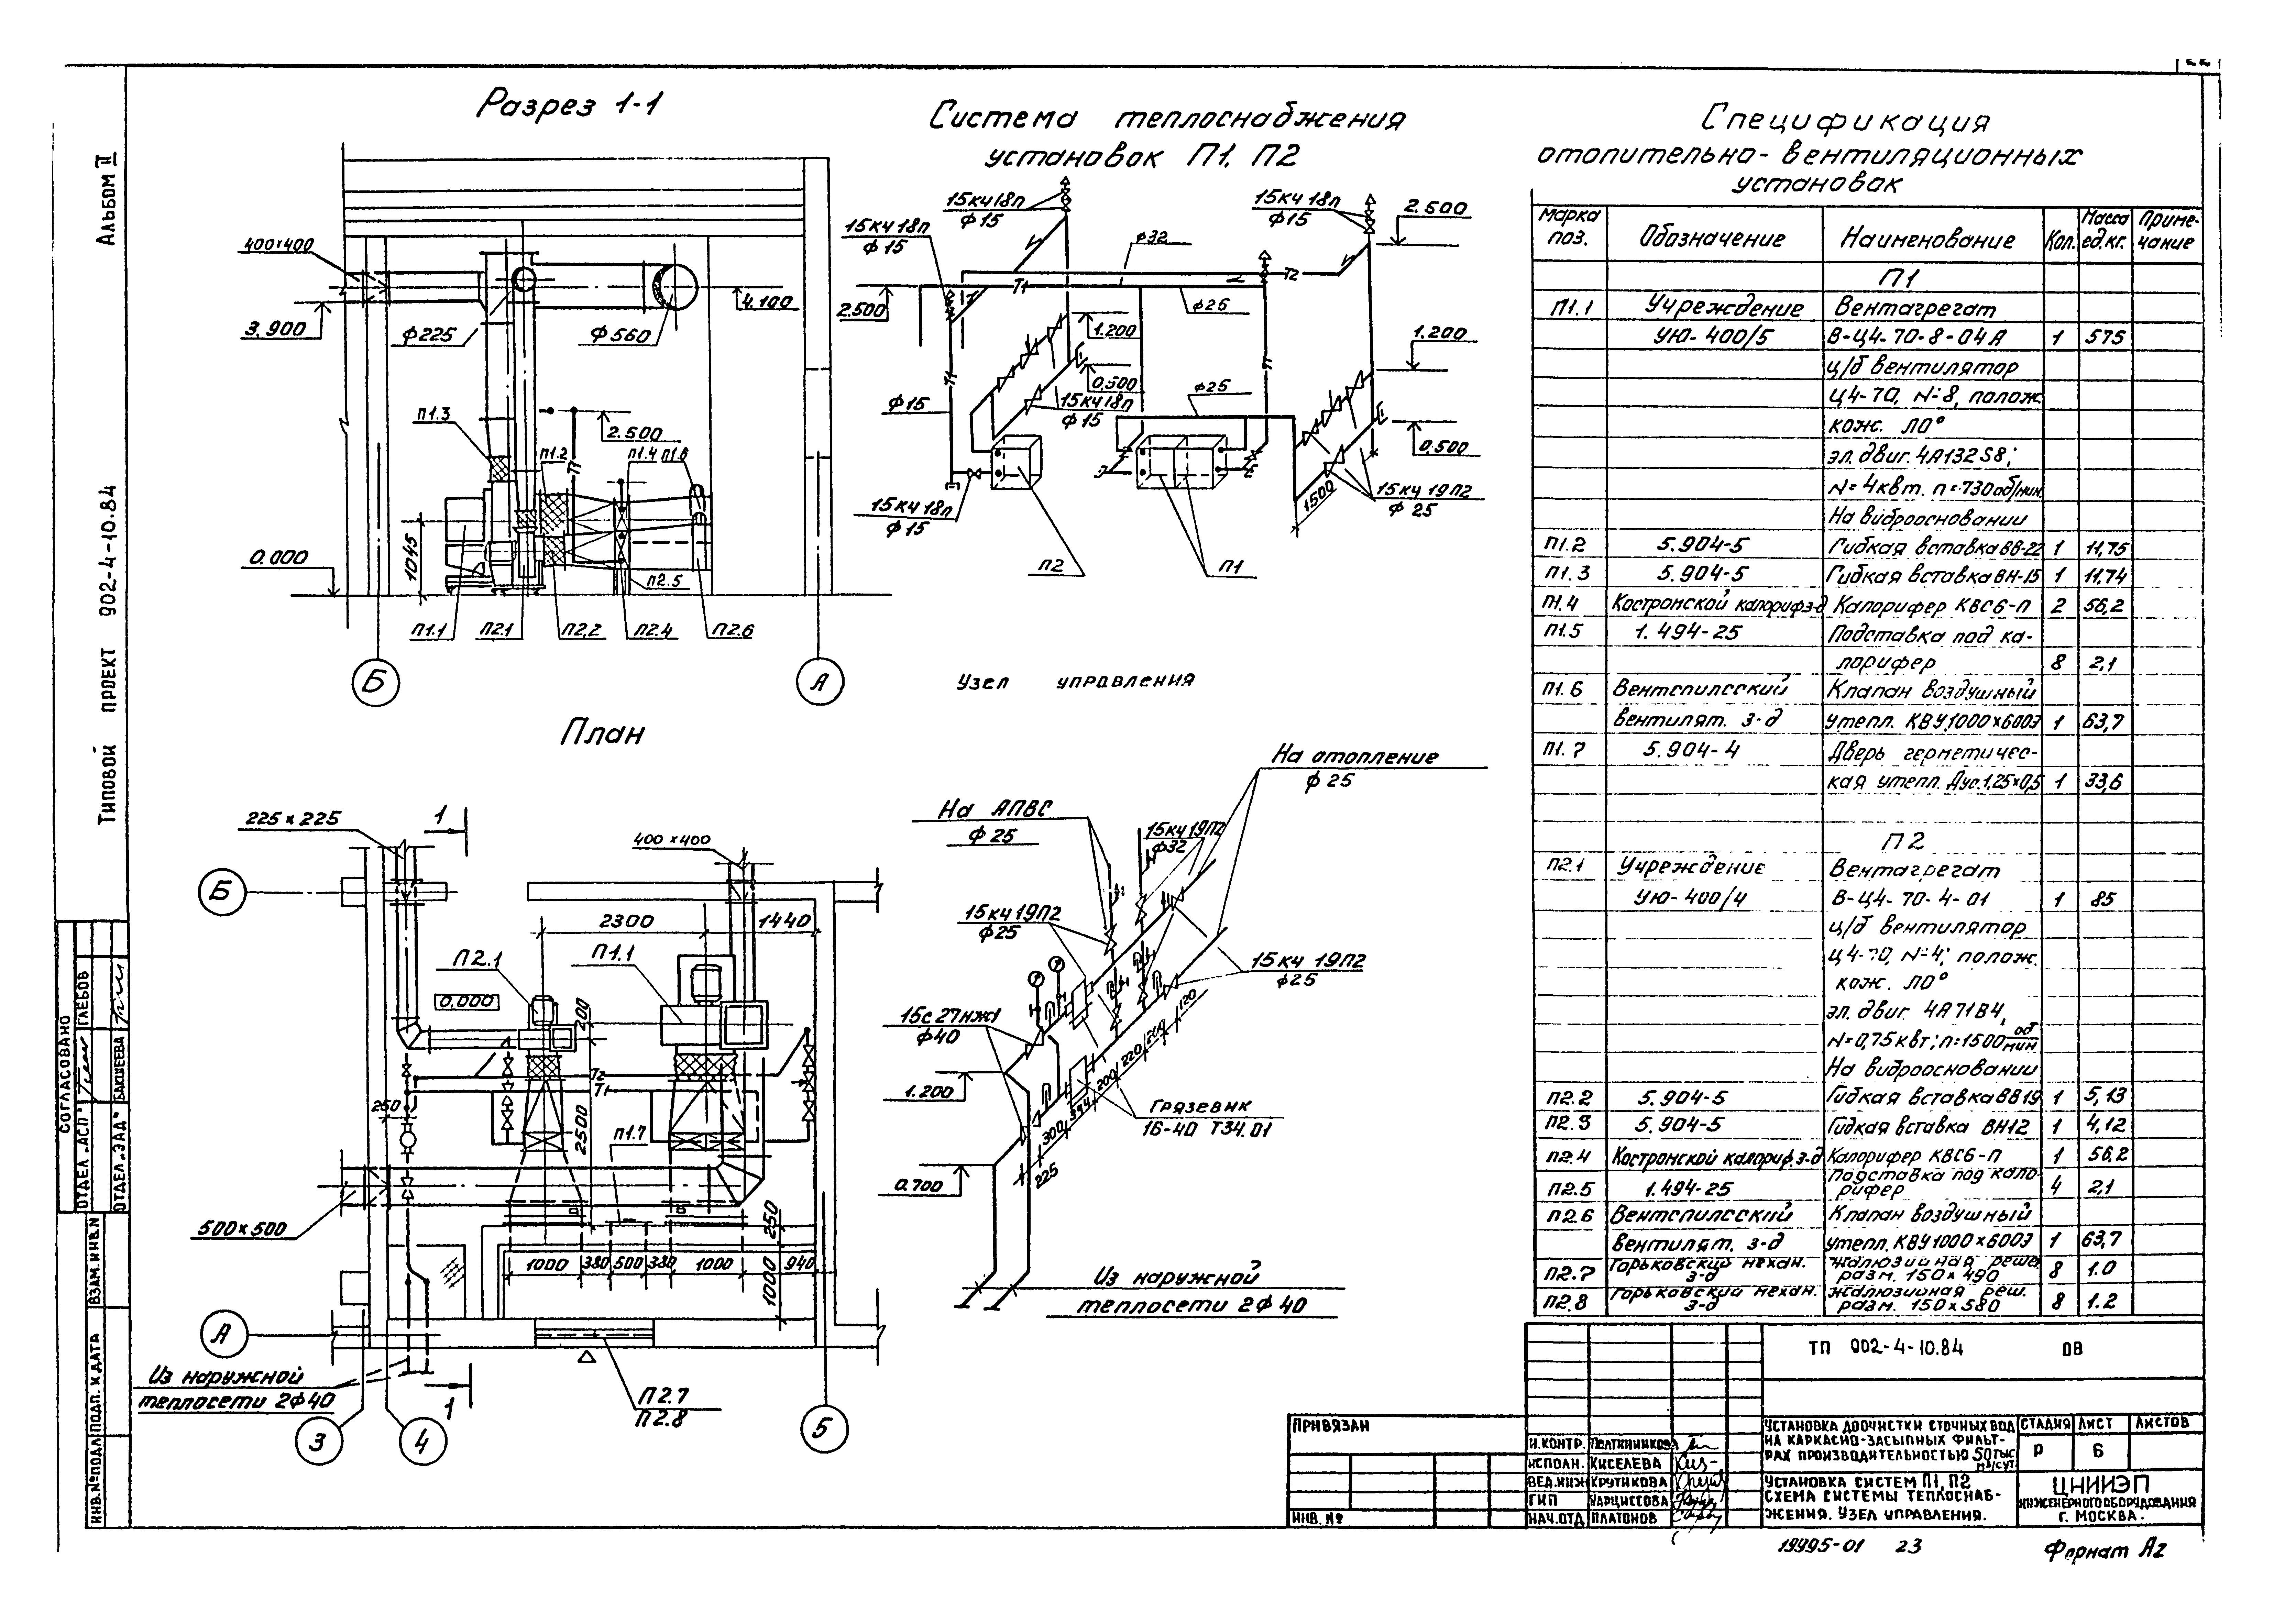 Альбом II
Типовой проект 902-4-10.84
Согласовано
Отдел „АСП“ Глебов
Отдел „ЭАД“ Бакшеева
Взам. инв. N
Подп. и дата
Инв. № подл
Разрез 1-1
400×400
3.900
ф225
ф560
4.100
П1.3
2.500
П1.2
Т1
П1.4
П1.6
1045
0.000
П2.5
П1.1
П2.1
П2.2
П2.4
П2.6
Б
А
План
225×225
1
400×400
Б
2300
1440
П2.1
П1.1
0.000
200
Т2
Т1
250
2500
П1.7
500×500
250
1000
380
500
380
1000
940
1000
А
Из наружной
теплосети 2ф40
1
П2.7
П2.8
3
4
5
Система теплоснабжения
установок П1, П2
15кч18п
ф15
15кч18п
ф15
15кч18п
ф15
2.500
ф32
Т2
Т1
2.500
ф25
1.200
1.200
0.500
Т1
Т1
ф15
15кч18п
ф15
ф25
0.500
15кч18п
ф15
1500
15кч19П2
ф25
П2
П1
Узел управления
На отопление
ф25
На АПВС
ф25
15кч19П2
ф32
15кч19П2
ф25
15кч 19П2
ф25
15с27нж1
ф40
120
200
220
200
394
300
225
1.200
Грязевик
16-40 Т34.01
0.700
Из наружной
теплосети 2ф40
Спецификация
отопительно-вентиляционных
установок
Марка поз. Обозначение Наименование Кол. Масса ед.кг. Примечание
П1
П1.1 Учреждение Вентагрегат
УЮ-400/5 В-Ц4-70-8-04А 1 575
ц/б вентилятор
Ц4-70, N=8, полож.
кож. Л0°
эл.двиг. 4А132S8;
N=4квт. n=730об/мин.
На виброосновании
П1.2 5.904-5 Гибкая вставка ВВ-22 1 11,75
П1.3 5.904-5 Гибкая вставка ВН-15 1 11,74
П1.4 Костронской калориф.з-д Калорифер КВС6-п 2 56,2
П1.5 1.494-25 Подставка под ка-
лорифер 8 2,1
П1.6 Вентспилсский Клапан воздушный
вентилят. з-д утепл. КВУ1000×600Э 1 63,7
П1.7 5.904-4 Дверь герметичес-
кая утепл. Дус.1,25×0,5 1 33,6
П2
П2.1 Учреждение Вентагрегат
УЮ-400/4 В-Ц4-70-4-01 1 85
ц/б вентилятор
Ц4-70, N=4; полож.
кож. Л0°
эл. двиг. 4А71В4,
N=0,75квт; n=1500 об/мин
На виброосновании
П2.2 5.904-5 Гибкая вставка ВВ19 1 5,13
П2.3 5.904-5 Гибкая вставка ВН12 1 4,12
П2.4 Костронской калориф.з-д Калорифер КВС6-п 1 56,2
П2.5 1.494-25 Подставка под кало-
рифер 4 2,1
П2.6 Вентспилсский Клапан воздушный
вентилят. з-д утепл. КВУ1000×600Э 1 63,7
П2.7 Горьковский механ. з-д Жалюзийная реш. разм. 150×490 8 1.0
П2.8 Горьковский механ. з-д Жалюзийная реш. разм. 150×580 8 1.2
ТП 902-4-10.84 ОВ
Привязан
Инв. №
Н.контр.
Исполн. Киселева
Вед.инж Крутикова
ГИП Нарциссова
Нач.отд Платонов
Установка доочистки сточных вод
на каркасно-засыпных фильт-
рах производительностью 50 тыс м³/сут
Стадия Лист Листов
Р 6
Установка систем П1, П2
Схема системы теплоснаб-
жения. Узел управления.
ЦНИИЭП
инженерного оборудования
г. Москва.
19995-01 23
Формат А2